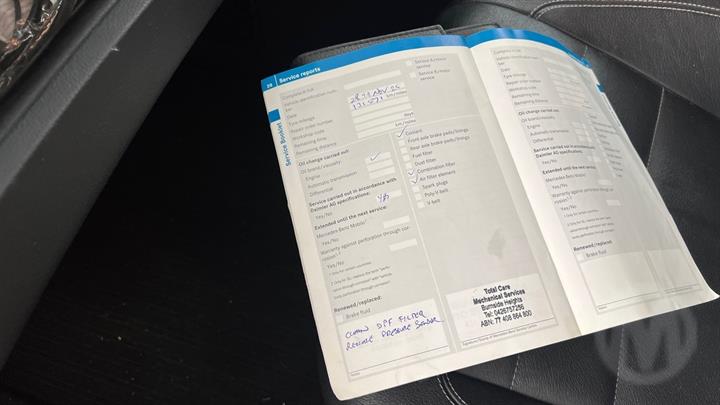 28 Service reports
Complete in full
Vehicle identification num-
ber
Date 28TH NOV 25
Tyre mileage 171571 km/miles
Repair order number
Workshop code
Remaining time days
Remaining distance km/miles
Oil change carried out:
Oil brand/viscosity
Engine
Automatic transmission
Differential
Service carried out in accordance with
Daimler AG specifications:
Yes/No
Extended until the next service:
Mercedes-Benz Mobilo
Yes/No
Warranty against perforation through cor-
rosion
Yes/No
Renewed/replaced:
Brake fluid
CLEAN DPF FILTER
PRESSURE SENSOR
Service A/minor
service
Service B/major
service
Coolant
Front axle brake pads/linings
Rear axle brake pads/linings
Fuel filter
Dust filter
Combination filter
Air filter element
Spark plugs
Poly-V-belt
V-belt
Total Care
Mechanical Services
Burnside Heights
Tel: 0426757256
ABN: 77 408 864 800
Service Booklet
Complete in full
Vehicle identification num-
ber
Date
Tyre mileage
Repair order number
Workshop code
Remaining time
Remaining distance
Oil change carried out:
Oil brand/viscosity
Engine
Automatic transmission
Differential
Service carried out in accordance with
Daimler AG specifications:
Yes/No
Extended until the next service:
Mercedes-Benz Mobilo
Yes/No
Warranty against perforation through cor-
rosion
Yes/No
Renewed/replaced:
Brake fluid
M